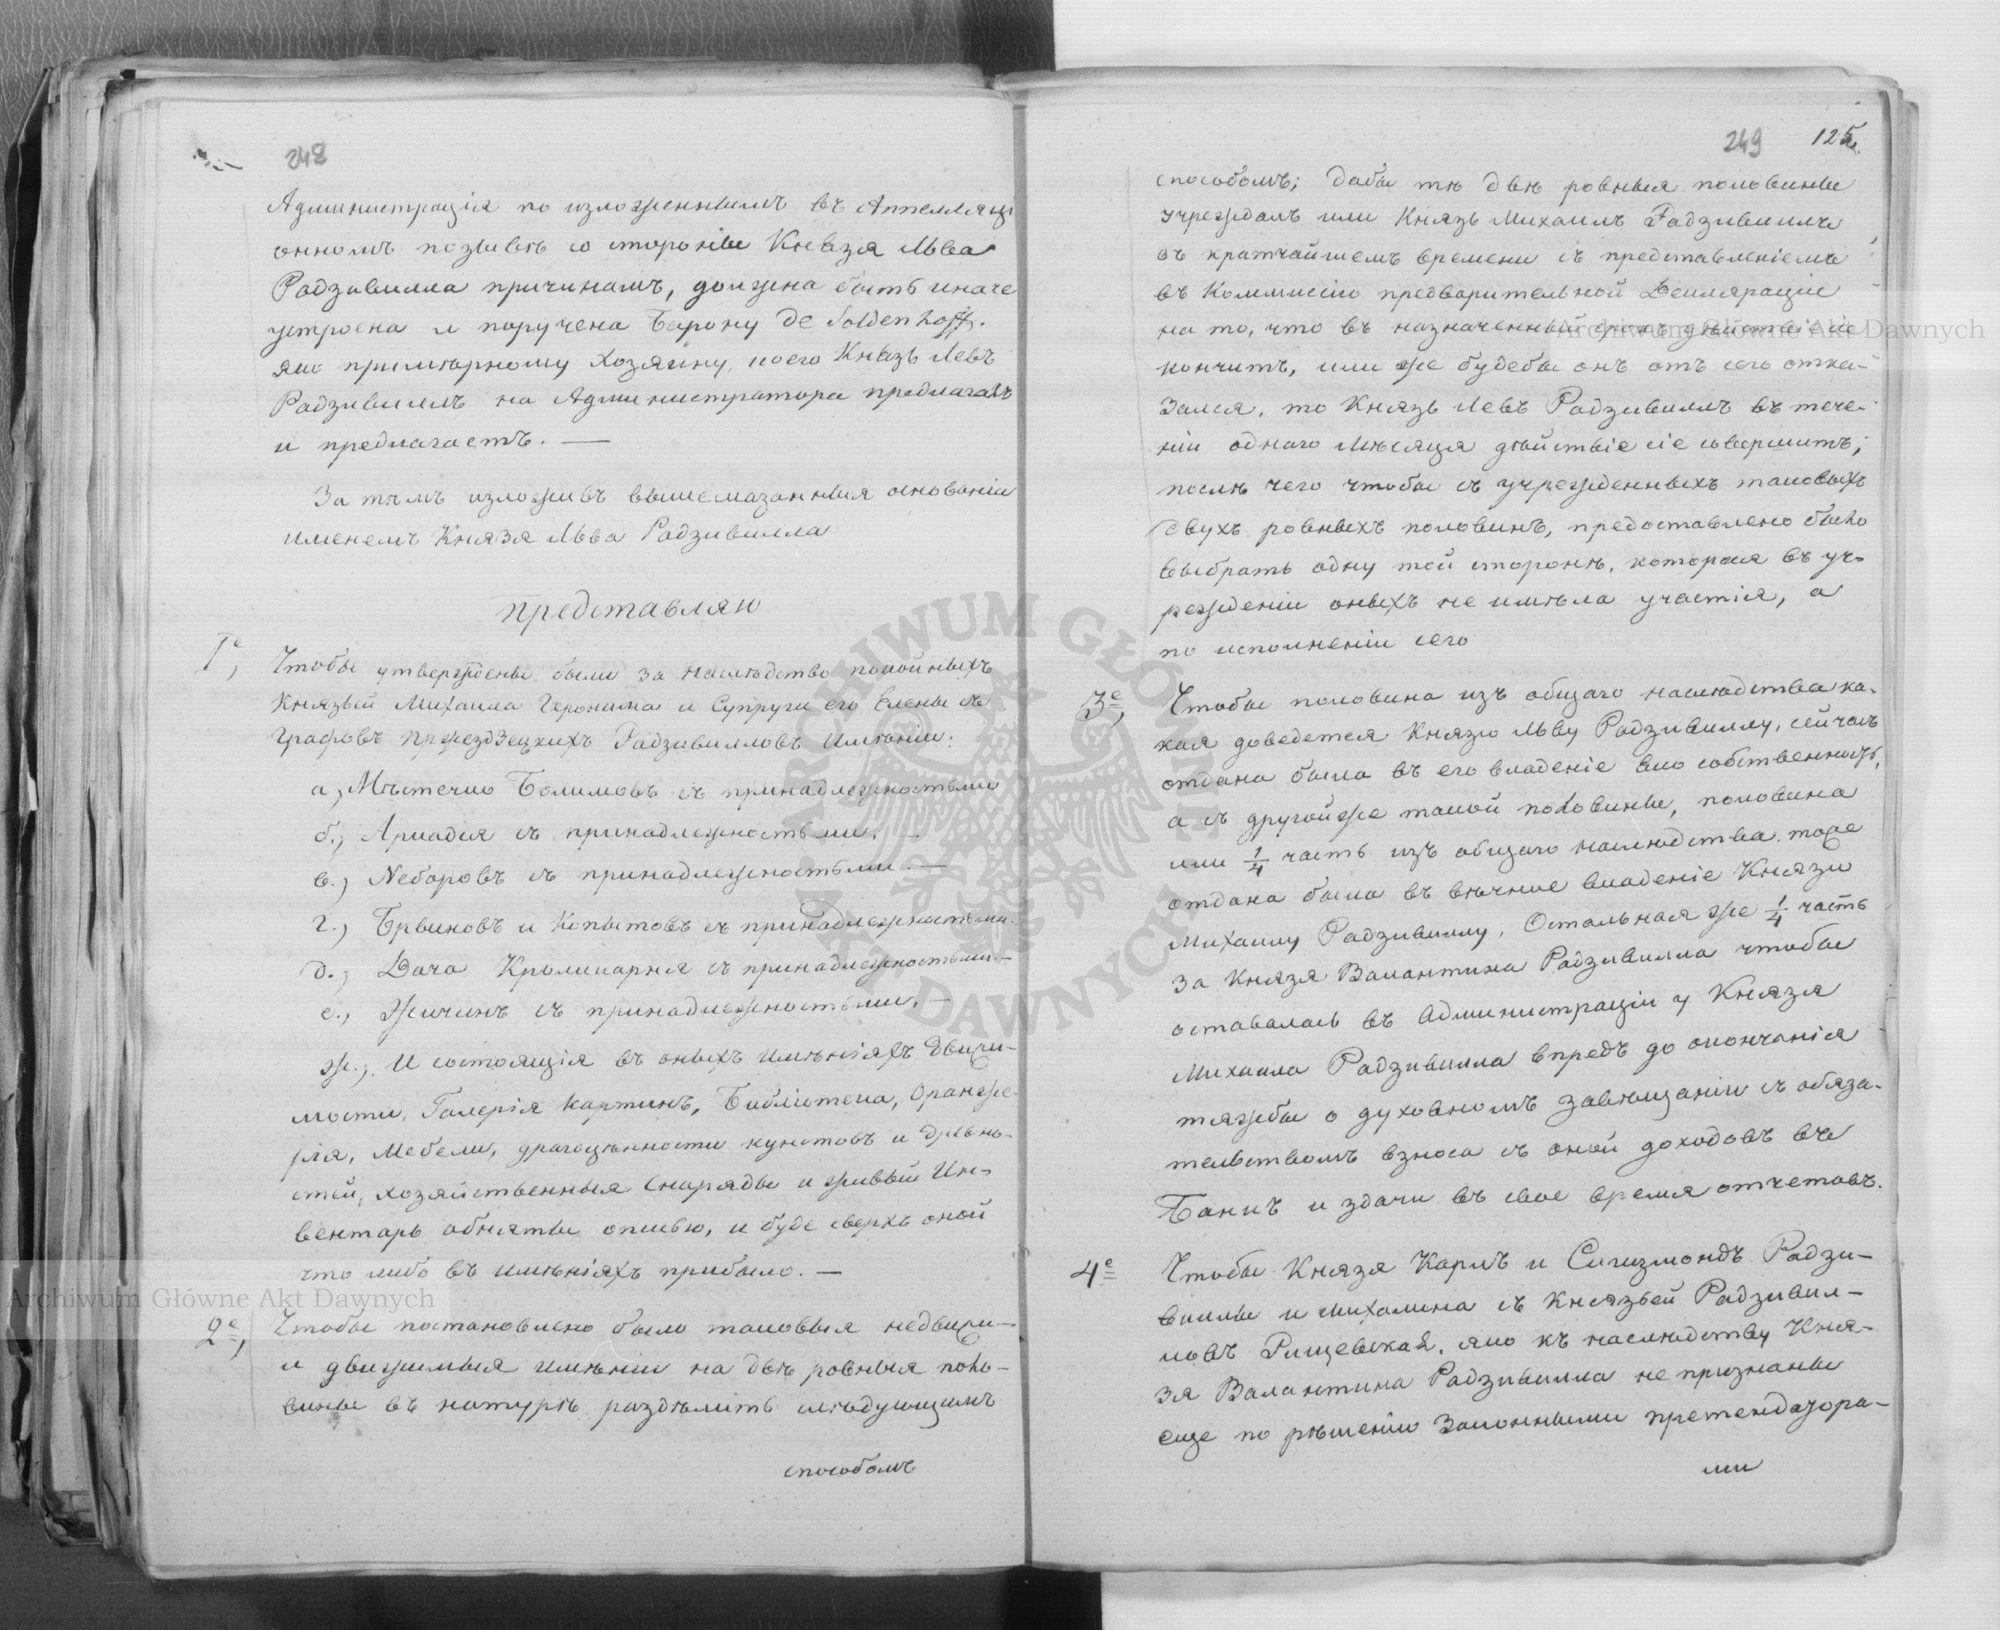 248
Администрація по изложеннымъ въ Аппелляці
онномъ позывѣ со стороны Князя Льва
Радзивилла причинамъ, должна быть иначе
устроена и поручена Барону de Soldenhoff.
яко примѣрному хозяину, коего Князь Левъ
Радзивиллъ на Администратора предлагалъ
и предлагаетъ. —
За тѣмъ изложивъ вышесказанныя основаніи
именемъ Князя Льва Радзивилла
Представляю
1е,
Чтобы утверждены были за наслѣдство покойныхъ
Князьей Михаила Геронима и Супруги его Елены съ
Графовъ Пржездзецкихъ Радзивилловъ Имѣніи:
а, Мѣстечко Болимовъ съ принадлежностьми
б., Аркадія съ принадлежностьми. —
в., Неборовъ съ принадлежностьми. —
г., Брвиновъ и Копытовъ съ принадлежностьми.
д., Дача Кроликарня съ принадлежностьми —
е., Жичинъ съ принадлежностьми. —
ж., И состоящія въ оныхъ имѣніяхъ движи-
мости, Галерія картинъ, Библіотека, Оранже-
рія, Мебели, драгоцѣнности кунстовъ и древно-
стей, хозяйственныя снаряды и живый Ин-
вентарь обняты описью, и буде сверхъ оной
что либо въ имѣніяхъ прибыло. —
2е,
Чтобы постановлено было таковыя недвижи-
и движимыя имѣніи на двѣ ровныя поло-
вины въ натурѣ раздѣлить слѣдующимъ
способомъ
249 125.
способомъ; дабы тѣ двѣ ровныя половины
учреждалъ или Князь Михаилъ Радзивиллъ
въ кратчайшемъ времени съ представленіемъ
въ Коммиссію предварительной Деклараціи
на то, что въ назначенный срокъ дѣйствіе сіе
кончитъ, или же будебы онъ отъ сего отка-
зался, то Князь Левъ Радзивиллъ въ тече-
ніи однаго мѣсяца дѣйствіе сіе совершитъ;
послѣ чего чтобы съ учрежденныхъ таковыхъ
двухъ ровныхъ половинъ, предоставлено было
выбрать одну той сторонѣ, которая въ уч-
режденіи оныхъ не имѣла участія, а
по исполненіи сего
3е,
Чтобы половина изъ общаго наслѣдства ка-
кая доведется Князю Льву Радзивиллу, сейчасъ
отдана была въ его владеніе яко собственность,
а съ другойже такой половины, половина
или 1/4 часть изъ общаго наслѣдства тоже
отдана была въ вѣчное владеніе Князю
Михаилу Радзивиллу. Остальная же 1/4 часть
за Князя Валантина Радзивилла чтобы
оставалась въ Администраціи у Князя
Михаила Радзивилла впредъ до окончанія
тяжбы о духовномъ завѣщаніи съ обяза-
тельствомъ взноса съ оной доходовъ въ
Банкъ и здачи въ свое время отчетовъ.
4е
Чтобы Князя Карлъ и Сигизмондъ Радзи-
виллы и Михалина съ Князьей Радзивил-
ловъ Рищевская, яко къ наслѣдству Кня-
зя Валантина Радзивилла не признаны
еще по рѣшенію Законными претендатора-
ми
Archiwum Główne Akt Dawnych
Archiwum Główne Akt Dawnych
ARCHIWUM GŁÓWNE AKT DAWNYCH